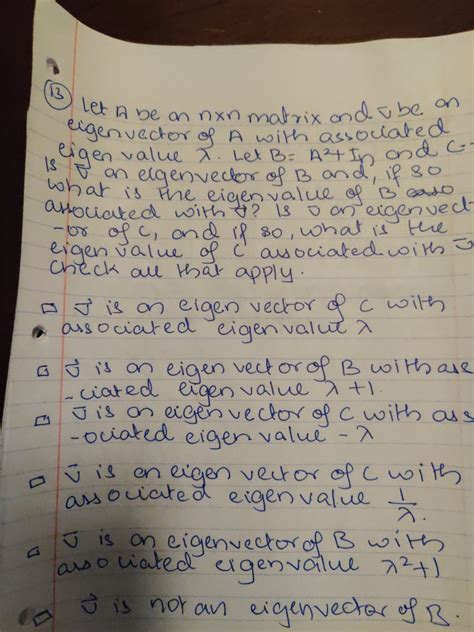 13 Let A be an nxn matrix and v̄ be an
eigenvector of A with associated
eigen value λ. Let B = A²+In and C=-
Is v̄ an eigenvector of B and, if so
what is the eigenvalue of B
associated with v̄? Is v̄ an eigenvect
-or of C, and if so, what is the
eigen value of C associated with v̄
Check all that apply.
v̄ is an eigen vector of C with
associated eigenvalue λ
v̄ is an eigen vector of B with asso
-ciated eigenvalue λ+1.
v̄ is an eigenvector of C with ass
-ociated eigen value -λ
v̄ is an eigen vector of C with
associated eigenvalue 1/λ.
v̄ is an eigenvector of B with
associated eigenvalue λ²+1
v̄ is not an eigenvector of B.